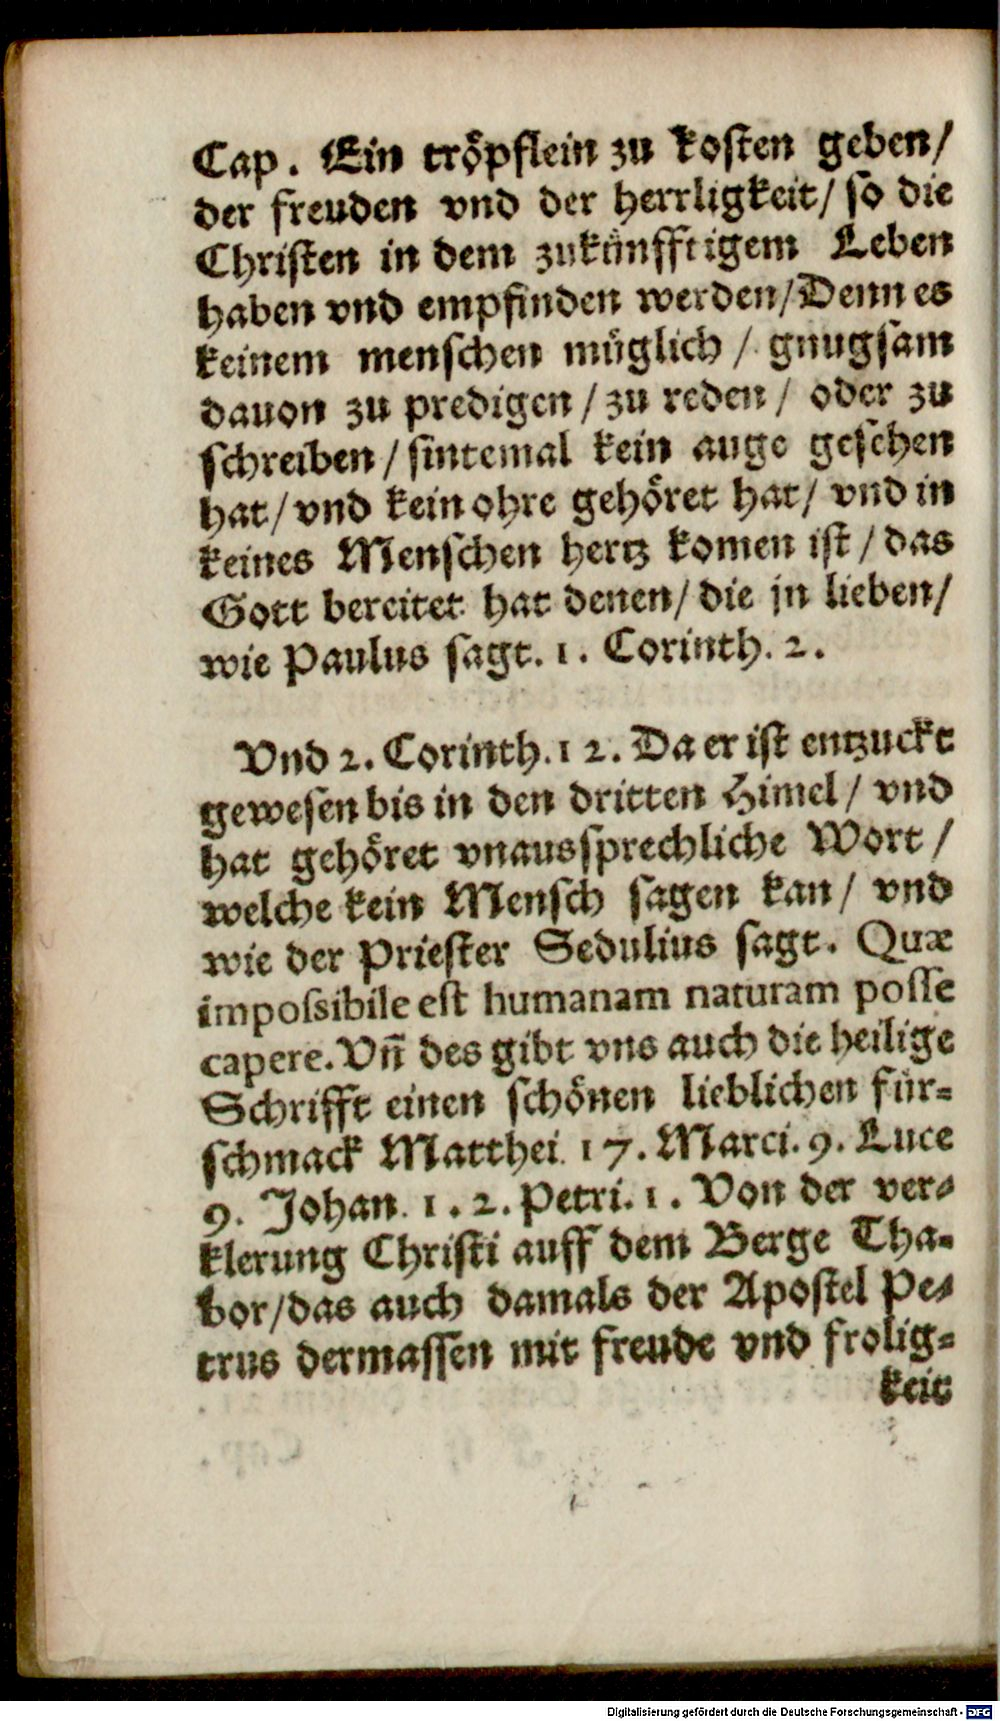 Cap. Ein tröpflein zu kosten geben/
der freuden vnd der herrligkeit/ so die
Christen in dem zukünfftigem Leben
haben vnd empfinden werden/Denn es
keinem menschen müglich / gnugsam
dauon zu predigen / zu reden / oder zu
schreiben / sintemal kein auge gesehen
hat/ vnd kein ohre gehöret hat/ vnd in
keines Menschen hertz komen ist / das
Gott bereitet hat denen/ die jn lieben/
wie Paulus sagt. 1. Corinth. 2.
Vnd 2. Corinth. 12. Da er ist entzuckt
gewesen bis in den dritten Himel / vnd
hat gehöret vnaussprechliche Wort /
welche kein Mensch sagen kan / vnd
wie der Priester Sedulius sagt. Quæ
impossibile est humanam naturam posse
capere. Vñ des gibt vns auch die heilige
Schrifft einen schönen lieblichen für-
schmack Matthei. 17. Marci. 9. Luce
9. Johan. 1. 2. Petri. 1. Von der ver-
klerung Christi auff dem Berge Tha-
bor/das auch damals der Apostel Pe-
trus dermassen mit freude vnd frolig-
keit
Digitalisierung gefördert durch die Deutsche Forschungsgemeinschaft - DFG